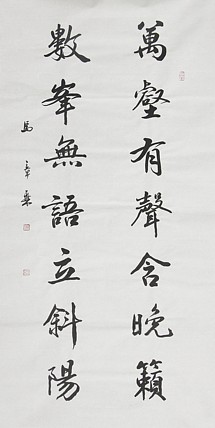 萬壑有聲含晚籟
數峯無語立斜陽